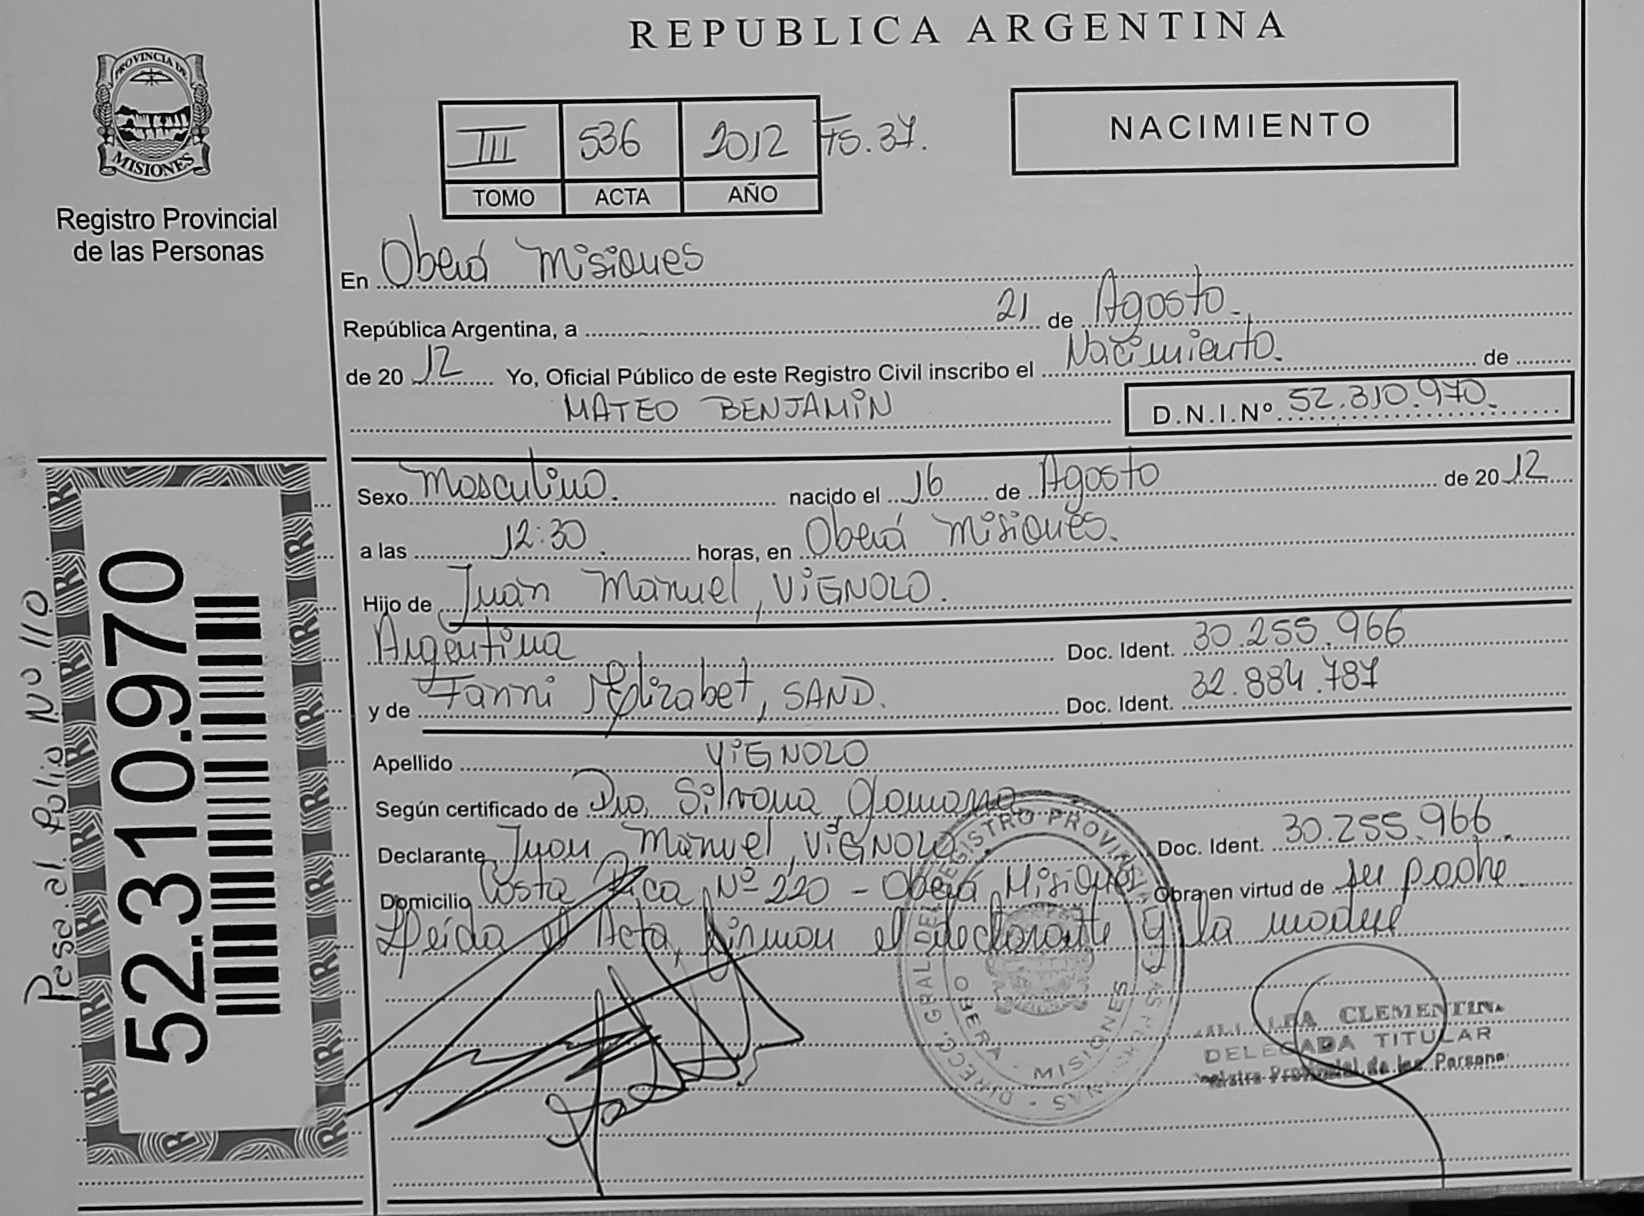 REPUBLICA ARGENTINA
PROVINCIA DE
MISIONES
Registro Provincial
de las Personas
III 536 2012 Fs. 37.
TOMO ACTA AÑO
NACIMIENTO
En Oberá Misiones
República Argentina, a 21 de Agosto.
de 2012 Yo, Oficial Público de este Registro Civil inscribo el Nacimiento. de
MATEO BENJAMIN
D.N.I.Nº 52.310.970.
Sexo Masculino. nacido el 16 de Agosto de 2012
a las 12:30. horas, en Oberá Misiones.
Hijo de Juan Manuel, VIGNOLO.
Argentina Doc. Ident. 30.255.966
y de Fanni Elizabet, SAND. Doc. Ident. 32.884.787
Apellido VIGNOLO
Según certificado de Dra. Silvana
Declarante Juan Manuel, VIGNOLO. Doc. Ident. 30.255.966.
Domicilio Costa Rica Nº 220 - Oberá Misiones Obra en virtud de su padre
Leída el Acta, firman el declarante y la madre
52.310.970
Pasa al folio Nº 110
DIRECC. GRAL. DEL REGISTRO PROVINCIAL DE LAS PERSONAS
OBERA - MISIONES
CLEMENTINA
DELEGADA TITULAR
Registro Provincial de las Personas